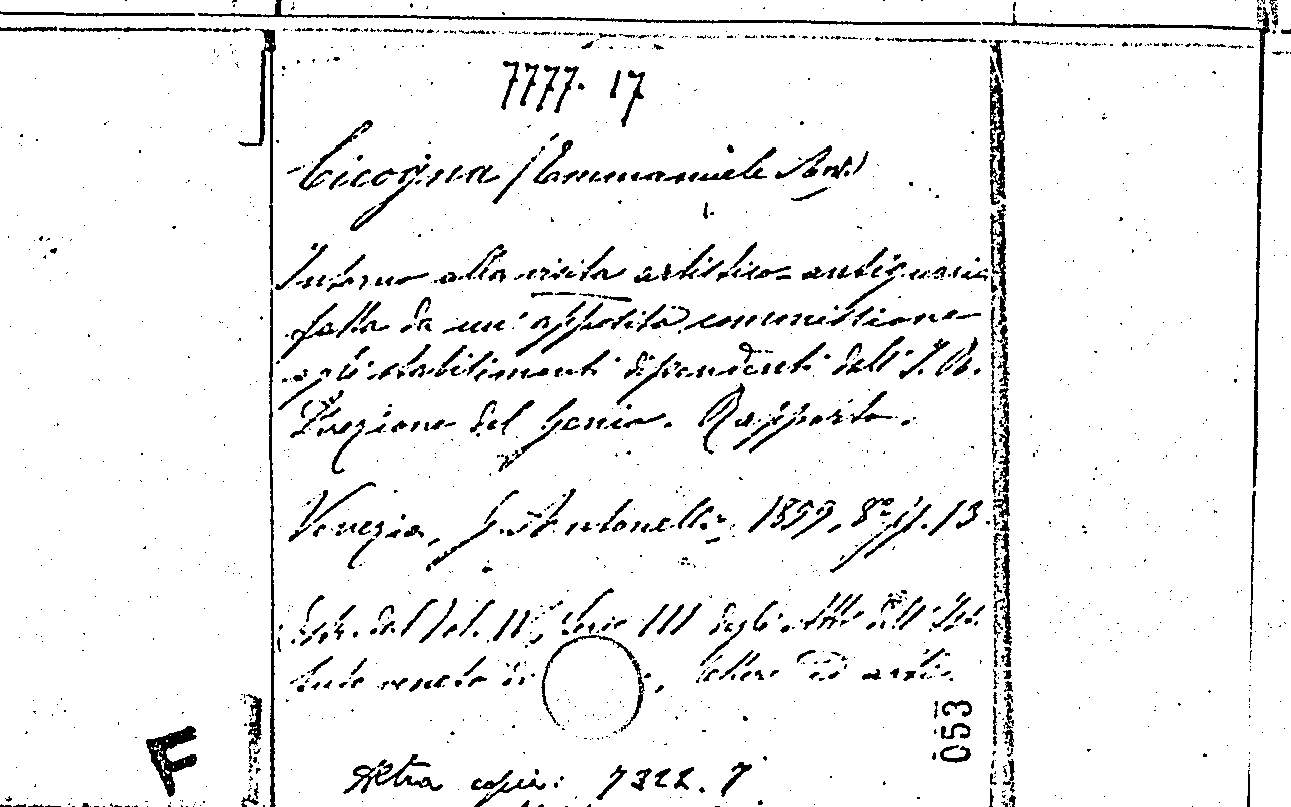 7777. 17
Cicogna (Emmanuele Ant.)
Intorno alla visita artistico-antiquaria
fatta da un' apposita commissione
agli stabilimenti dipendenti dell' I. R.
Direzione del Genio. Rapporto.
Venezia, G. Antonelli, 1859, 8º, pp. 13.
Estr. dal Vol. IV, Serie III degli Atti dell' Isti
tuto veneto di , lettere ed arti.
Altra copia: 7322. 7
053
F